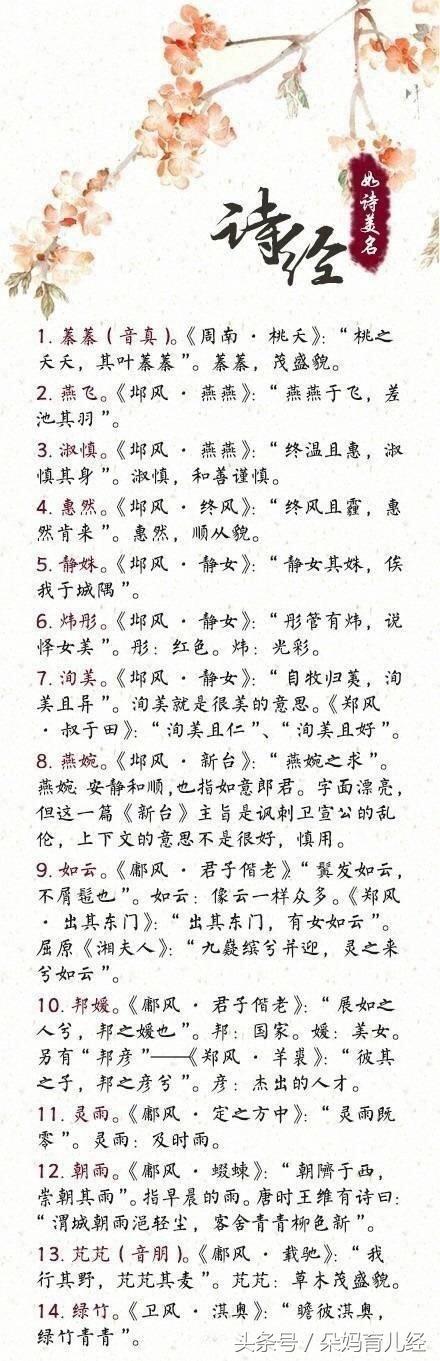 诗经
如诗美名
1. 蓁蓁（音真）。《周南·桃夭》：“桃之
夭夭，其叶蓁蓁”。蓁蓁，茂盛貌。
2. 燕飞。《邶风·燕燕》：“燕燕于飞，差
池其羽”。
3. 淑慎。《邶风·燕燕》：“终温且惠，淑
慎其身”。淑慎，和善谨慎。
4. 惠然。《邶风·终风》：“终风且霾，惠
然肯来”。惠然，顺从貌。
5. 静姝。《邶风·静女》：“静女其姝，俟
我于城隅”。
6. 炜彤。《邶风·静女》：“彤管有炜，说
怿女美”。彤：红色。炜：光彩。
7. 洵美。《邶风·静女》：“自牧归荑，洵
美且异”。洵美就是很美的意思。《郑风
·叔于田》：“洵美且仁”、“洵美且好”。
8. 燕婉。《邶风·新台》：“燕婉之求”。
燕婉:安静和顺,也指如意郎君。字面漂亮，
但这一篇《新台》主旨是讽刺卫宣公的乱
伦，上下文的意思不是很好，慎用。
9. 如云。《鄘风·君子偕老》“鬒发如云，
不屑髢也”。如云：像云一样众多。《郑风
·出其东门》：“出其东门，有女如云”。
屈原《湘夫人》：“九嶷缤兮并迎，灵之来
兮如云”。
10. 邦媛。《鄘风·君子偕老》：“展如之
人兮，邦之媛也”。邦：国家。媛：美女。
另有“邦彦”——《郑风·羊裘》：“彼其
之子，邦之彦兮”。彦：杰出的人才。
11. 灵雨。《鄘风·定之方中》：“灵雨既
零”。灵雨：及时雨。
12. 朝雨。《鄘风·蝃蝀》：“朝隮于西，
崇朝其雨”。指早晨的雨。唐时王维有诗曰：
“渭城朝雨浥轻尘，客舍青青柳色新”。
13. 芃芃（音朋）。《鄘风·载驰》：“我
行其野，芃芃其麦”。芃芃：草木茂盛貌。
14. 绿竹。《卫风·淇奥》：“瞻彼淇奥，
绿竹青青”。
头条号／朵妈育儿经